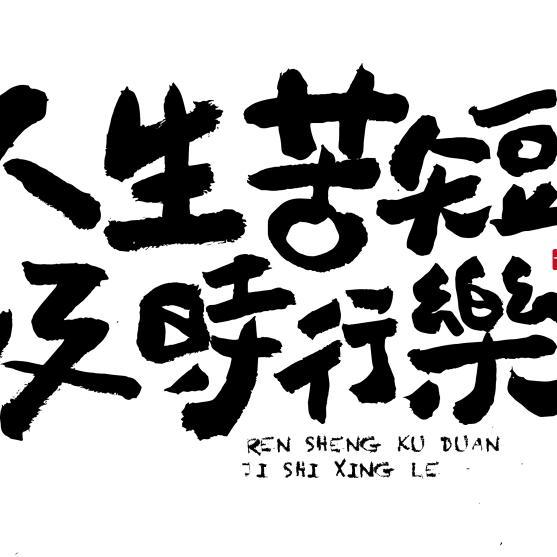 人生苦短
及時行樂
REN SHENG KU DUAN
JI SHI XING LE